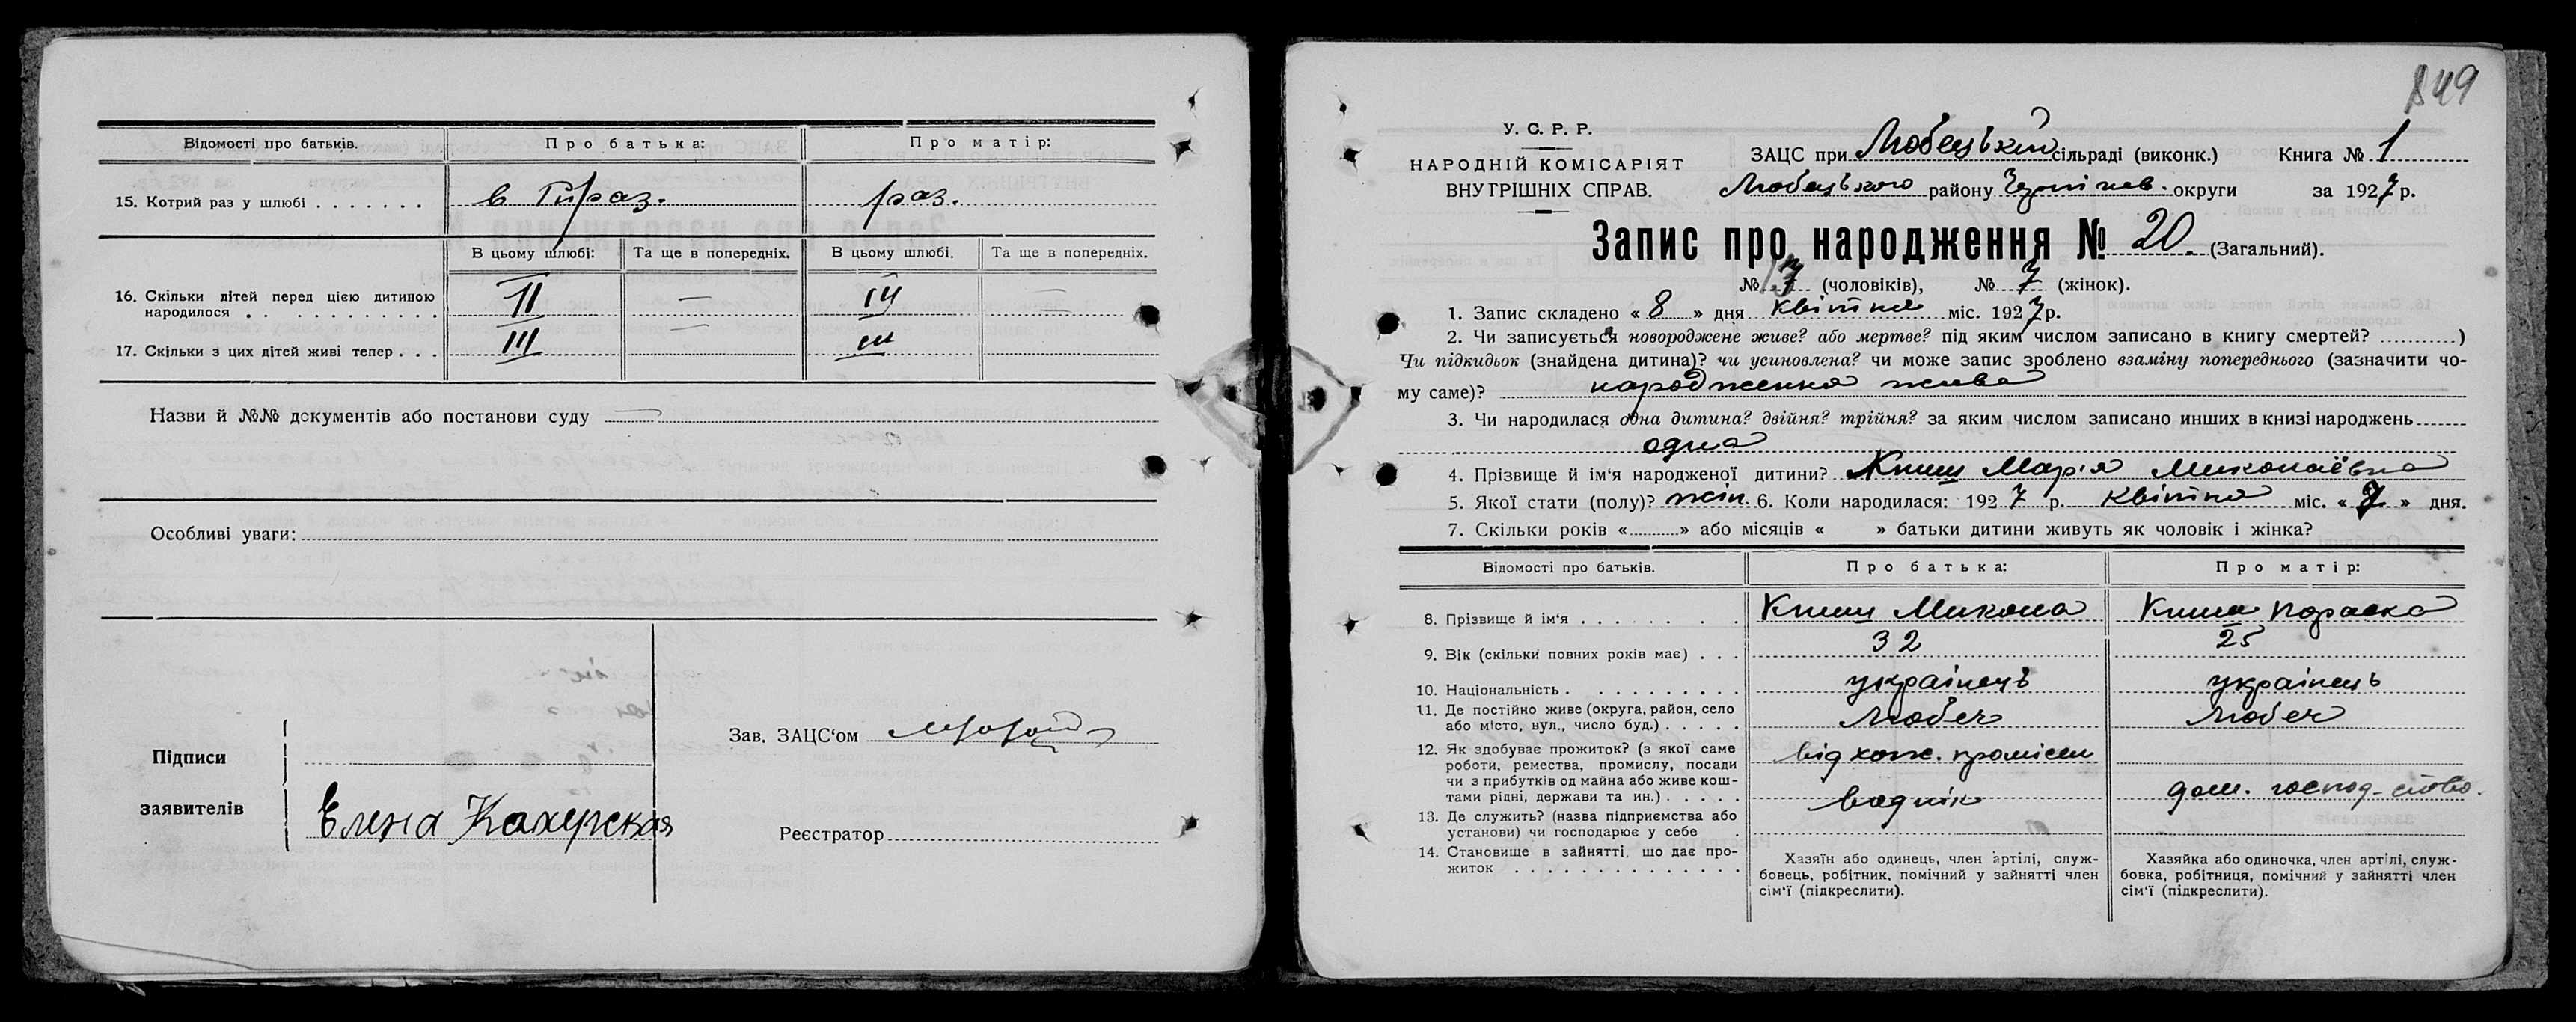 Відомості про батьків.
Про батька:
Про матір:
15. Котрий раз у шлюбі
раз.
В цьому шлюбі:
Та ще в попередніх.
В цьому шлюбі.
Та ще в попередніх.
16. Скільки дітей перед цією дитиною
народилося
II
—
III
—
17. Скільки з цих дітей живі тепер
III
—
III
Назви й №№ документів або постанови суду —
Особливі уваги:
Підписи
заявителів
Елена Кахерская
Зав. ЗАЦС'ом
Реєстратор
849
У. С. Р. Р.
НАРОДНІЙ КОМІСАРІЯТ
ВНУТРІШНІХ СПРАВ.
ЗАЦС при Любецькій сільраді (виконк.) Книга № 1
Любецького району Чернігів. округи за 1927 р.
Запис про народження № 20. (Загальний).
№ 13 (чоловіків), № 7 (жінок).
1. Запис складено « 8 » дня квітня міс. 1927 р.
2. Чи записується новороджене живе? або мертве? під яким числом записано в книгу смертей? )
Чи підкидьок (знайдена дитина)? чи усиновлена? чи може запис зроблено взаміну попереднього (зазначити чо-
му саме)? народженна жива
3. Чи народилася одна дитина? двійня? трійня? за яким числом записано инших в книзі народжень
одна
4. Прізвище й ім'я народженої дитини? Книш Марія Миколаёвна
5. Якої стати (полу)? жін. 6. Коли народилася: 1927 р. квітня міс. « 7 » дня.
7. Скільки років « » або місяців « » батьки дитини живуть як чоловік і жінка?
Відомості про батьків.
Про батька:
Про матір:
8. Прізвище й ім'я
Книш Микола
Книш Параска
9. Вік (скільки повних років має)
32
25
10. Національність
українець
українець
11. Де постійно живе (округа, район, село
або місто, вул., число буд.)
Любеч
Любеч
12. Як здобуває прожиток? (з якої саме
роботи, ремества, промислу, посади
чи з прибутків од майна або живе кош-
тами рідні, держави та ин.)
відхож. промісел
водник
дом. господ-ство.
13. Де служить? (назва підприємства або
установи) чи господарює у себе
14. Становище в зайнятті, що дає про-
житок
Хазяїн або одинець, член артілі, служ-
бовець, робітник, помічний у зайнятті член
сім'ї (підкреслити).
Хазяйка або одиночка, член артілі, служ-
бовка, робітниця, помічний у зайнятті член
сім'ї (підкреслити).